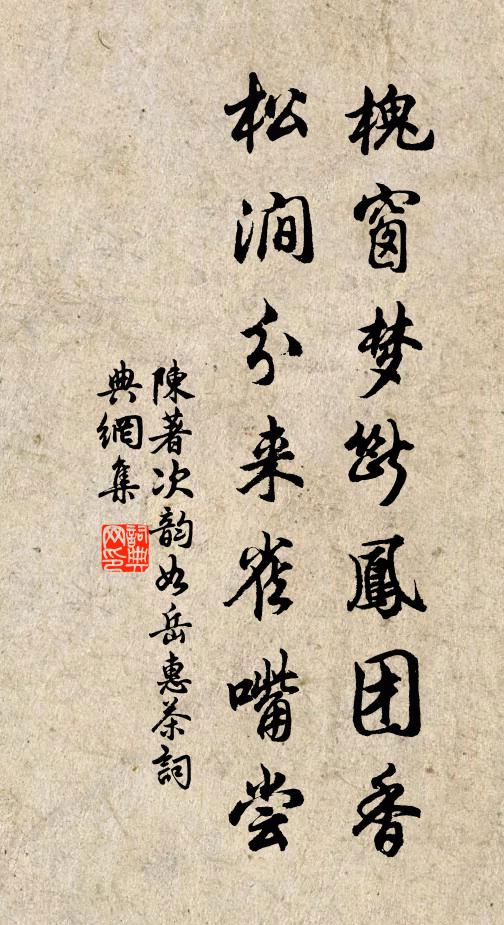 槐窗梦断鳳团香
松澗分来雀嘴尝
陳著次韵如岳惠茶詞
典網集
詞典网印